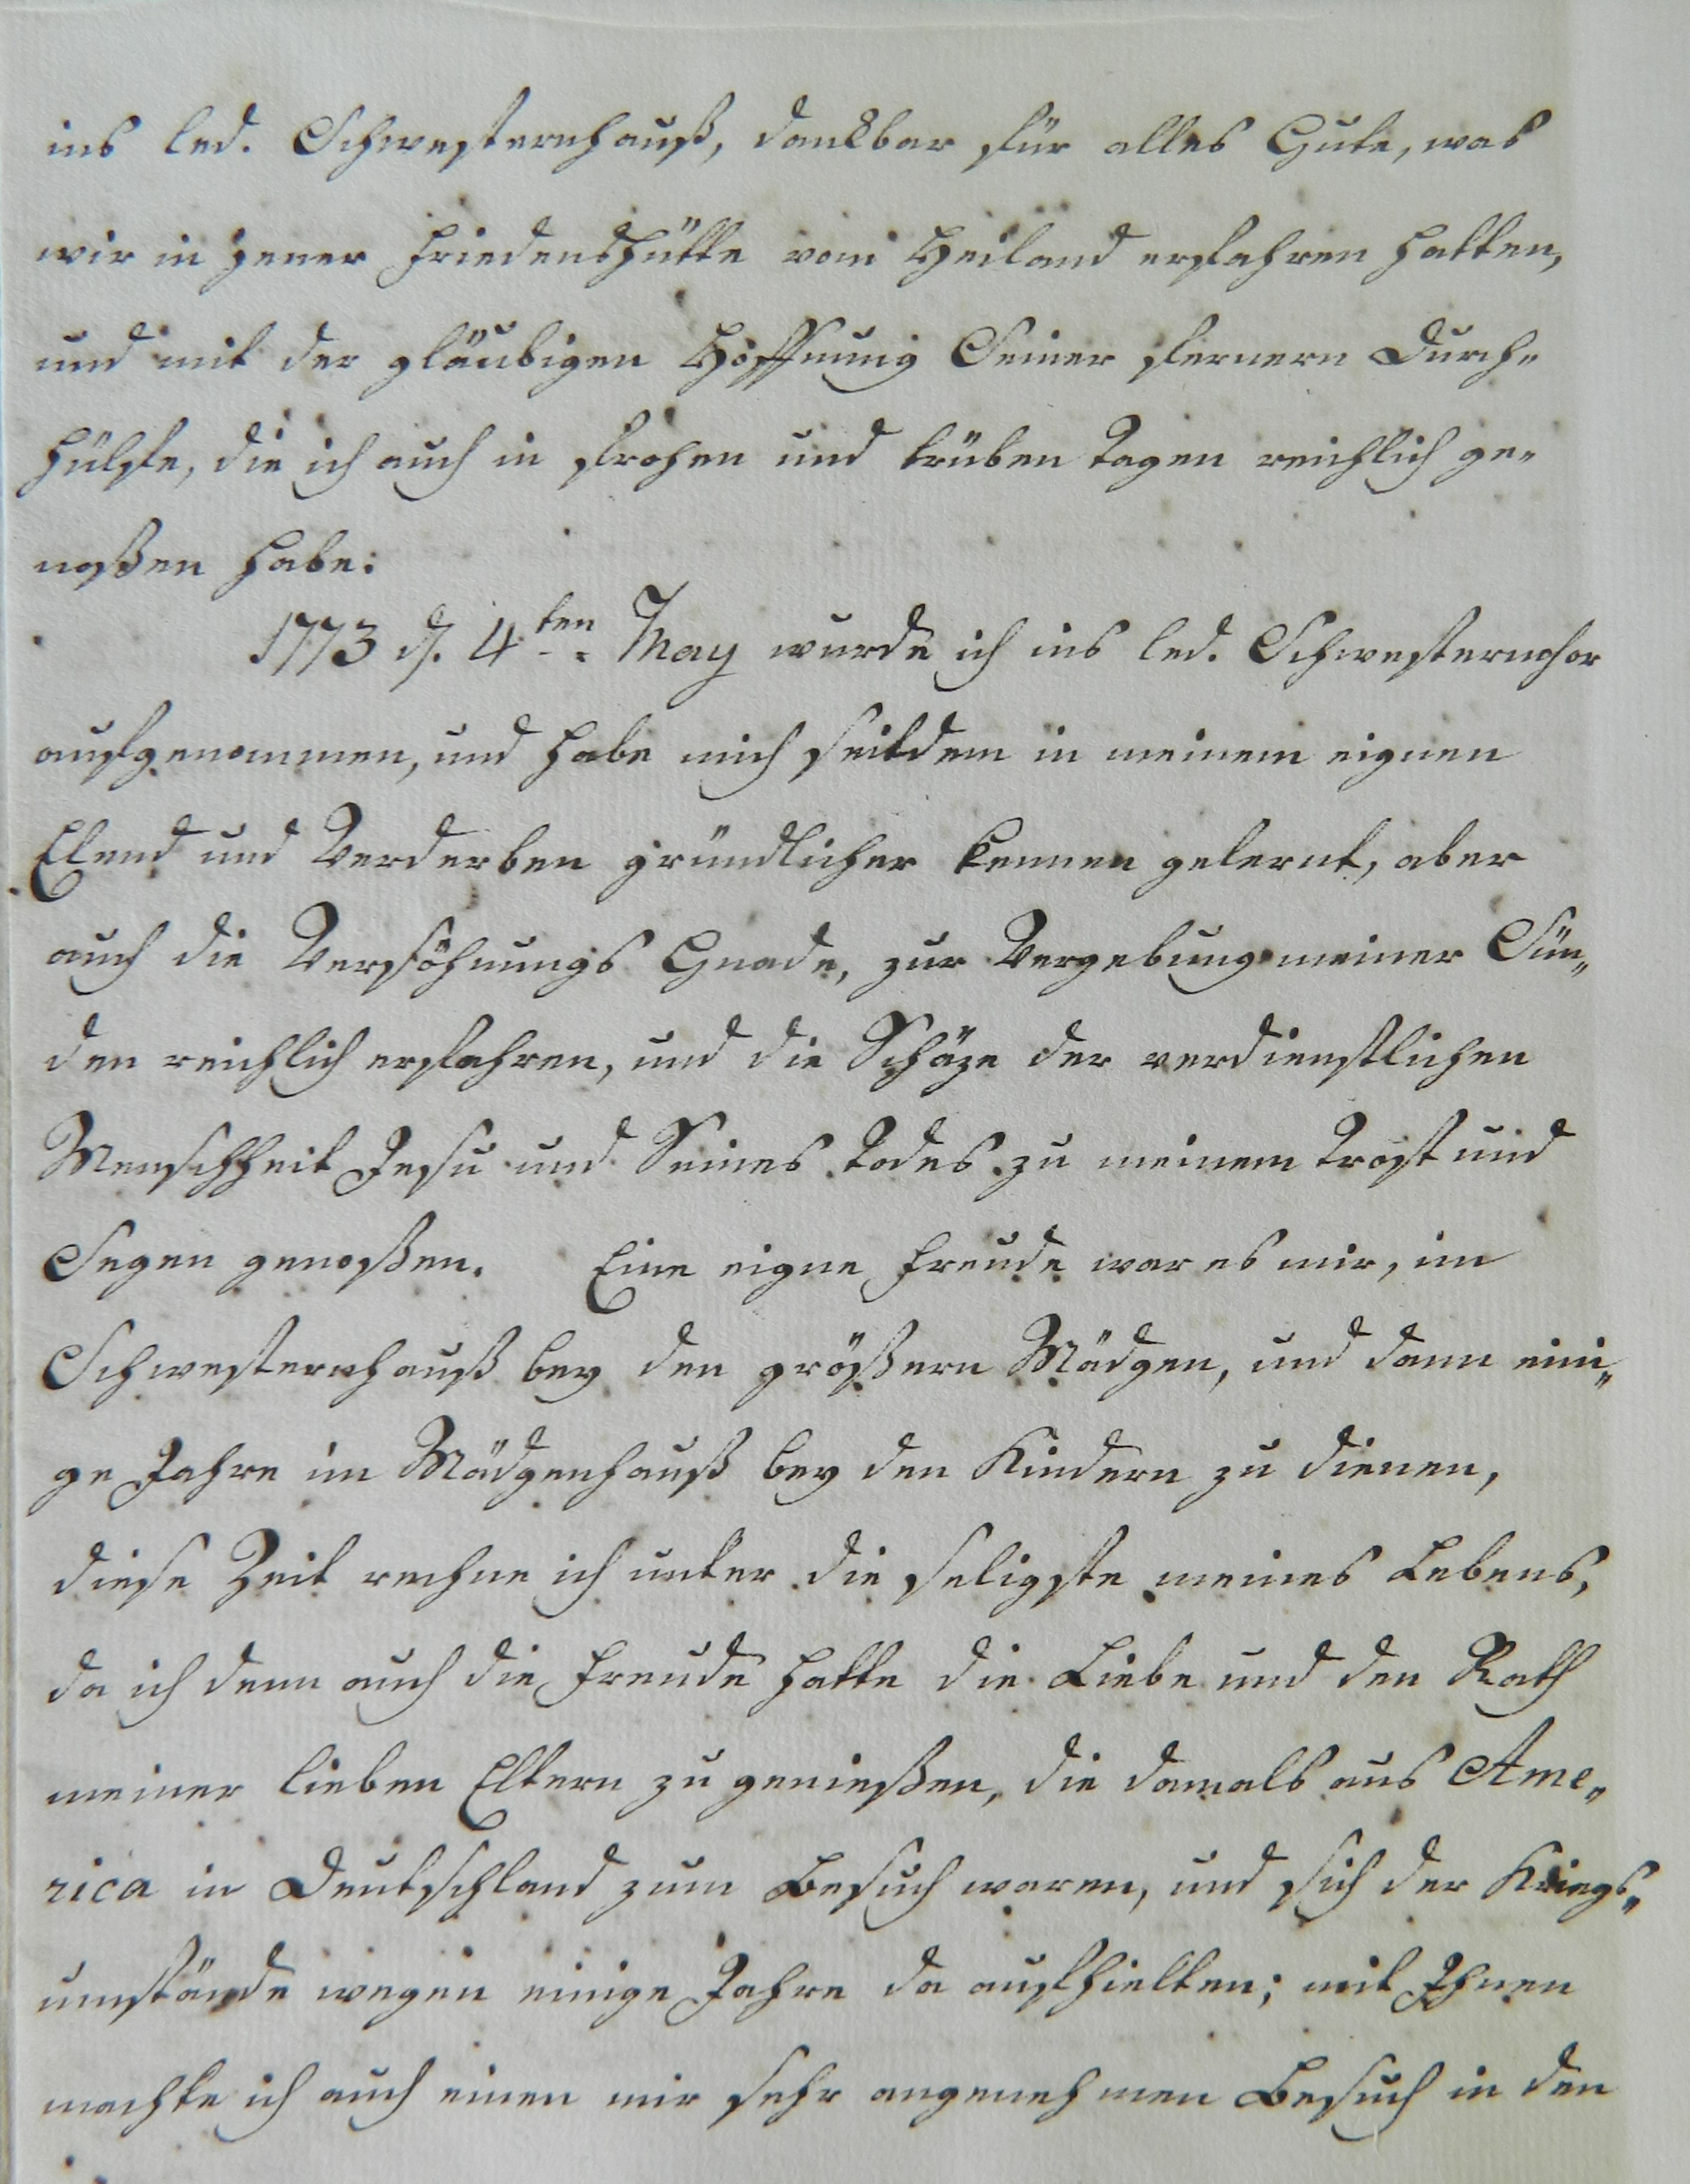 ins led. Schwesternhauß, dankbar für alles Gute, was
wir in jener Friedenshütte vom Heiland erfahren hatten,
und mit der gläubigen Hoffnung Seiner fernern Durch-
hülfe, die ich auch in frohen und trüben Tagen reichlich ge-
noßen habe:
1773 d. 4ten May wurde ich ins led. Schwesternchor
aufgenommen, und habe mich seitdem in meinem eignen
Elend und Verderben gründlicher kennen gelernt, aber
auch die Versöhnungs Gnade, zur Vergebung meiner Sün-
den reichlich erfahren, und die Schäze der verdienstlichen
Menschheit Jesu und Seines Todes zu meinem Trost und
Segen genoßen. Eine eigne Freude war es mir, im
Schwesternhauß bey den größern Mädgen, und dann eini-
ge Jahre im Mädgenhauß bey den Kindern zu dienen,
diese Zeit rechne ich unter die seligste meines Lebens,
da ich denn auch die Freude hatte die Liebe und den Rath
meiner lieben Eltern zu genießen, die damals aus Ame-
rica in Deutschland zum Besuch waren, und sich der Kriegs-
umstände wegen einige Jahre da aufhielten; mit Ihnen
machte ich auch einen mir sehr angenehmen Besuch in den